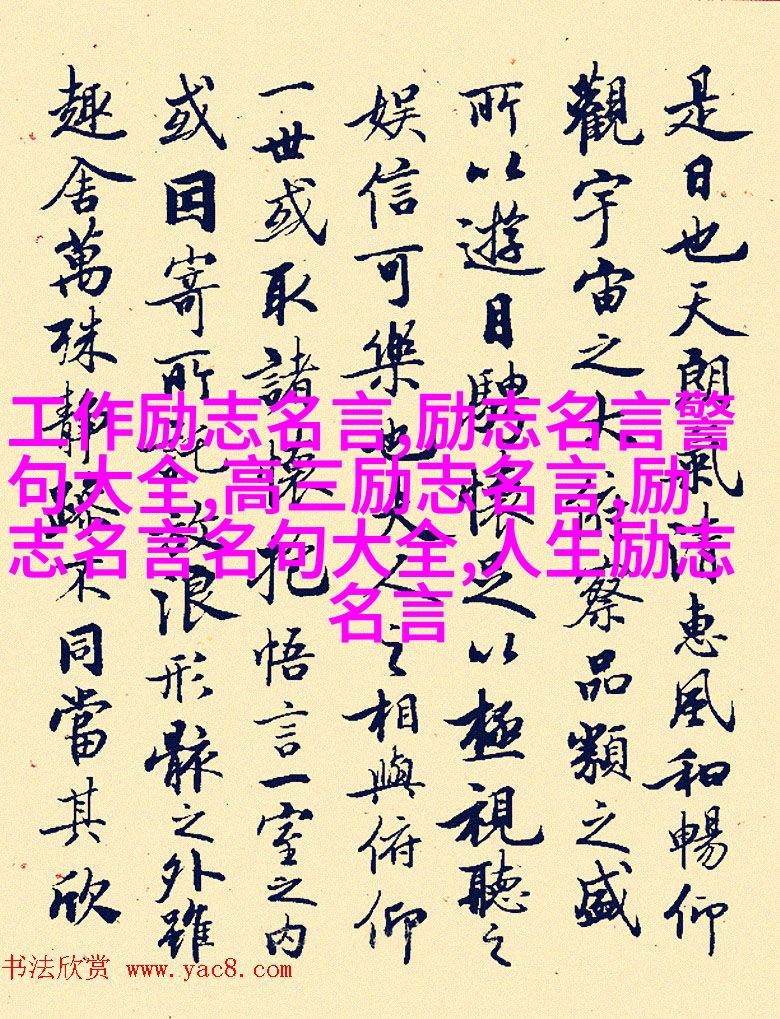 是日也天朗氣清惠風和暢仰
觀宇宙之大俯察品類之盛
所以遊目騁懷足以極視聽之
娱信可樂也夫人之相與俯仰
一世或取諸懷抱悟言一室之内
或因寄所託放浪形骸之外雖
趣舍萬殊静躁不同當其欣
工作励志名言,励志名言警
句大全,高三励志名言,励
志名言名句大全,人生励志
名言
书法欣赏 www.yac8.com